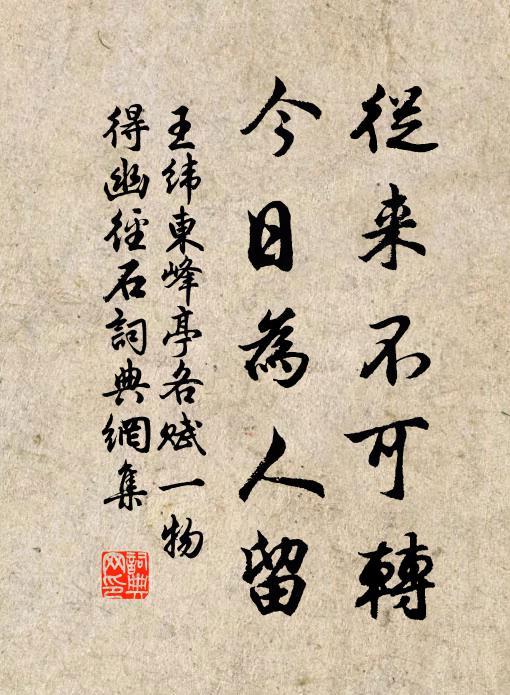 從来不可轉
今日為人留
王緯東峰亭各賦一物
得幽徑石詞典網集
詞典網印